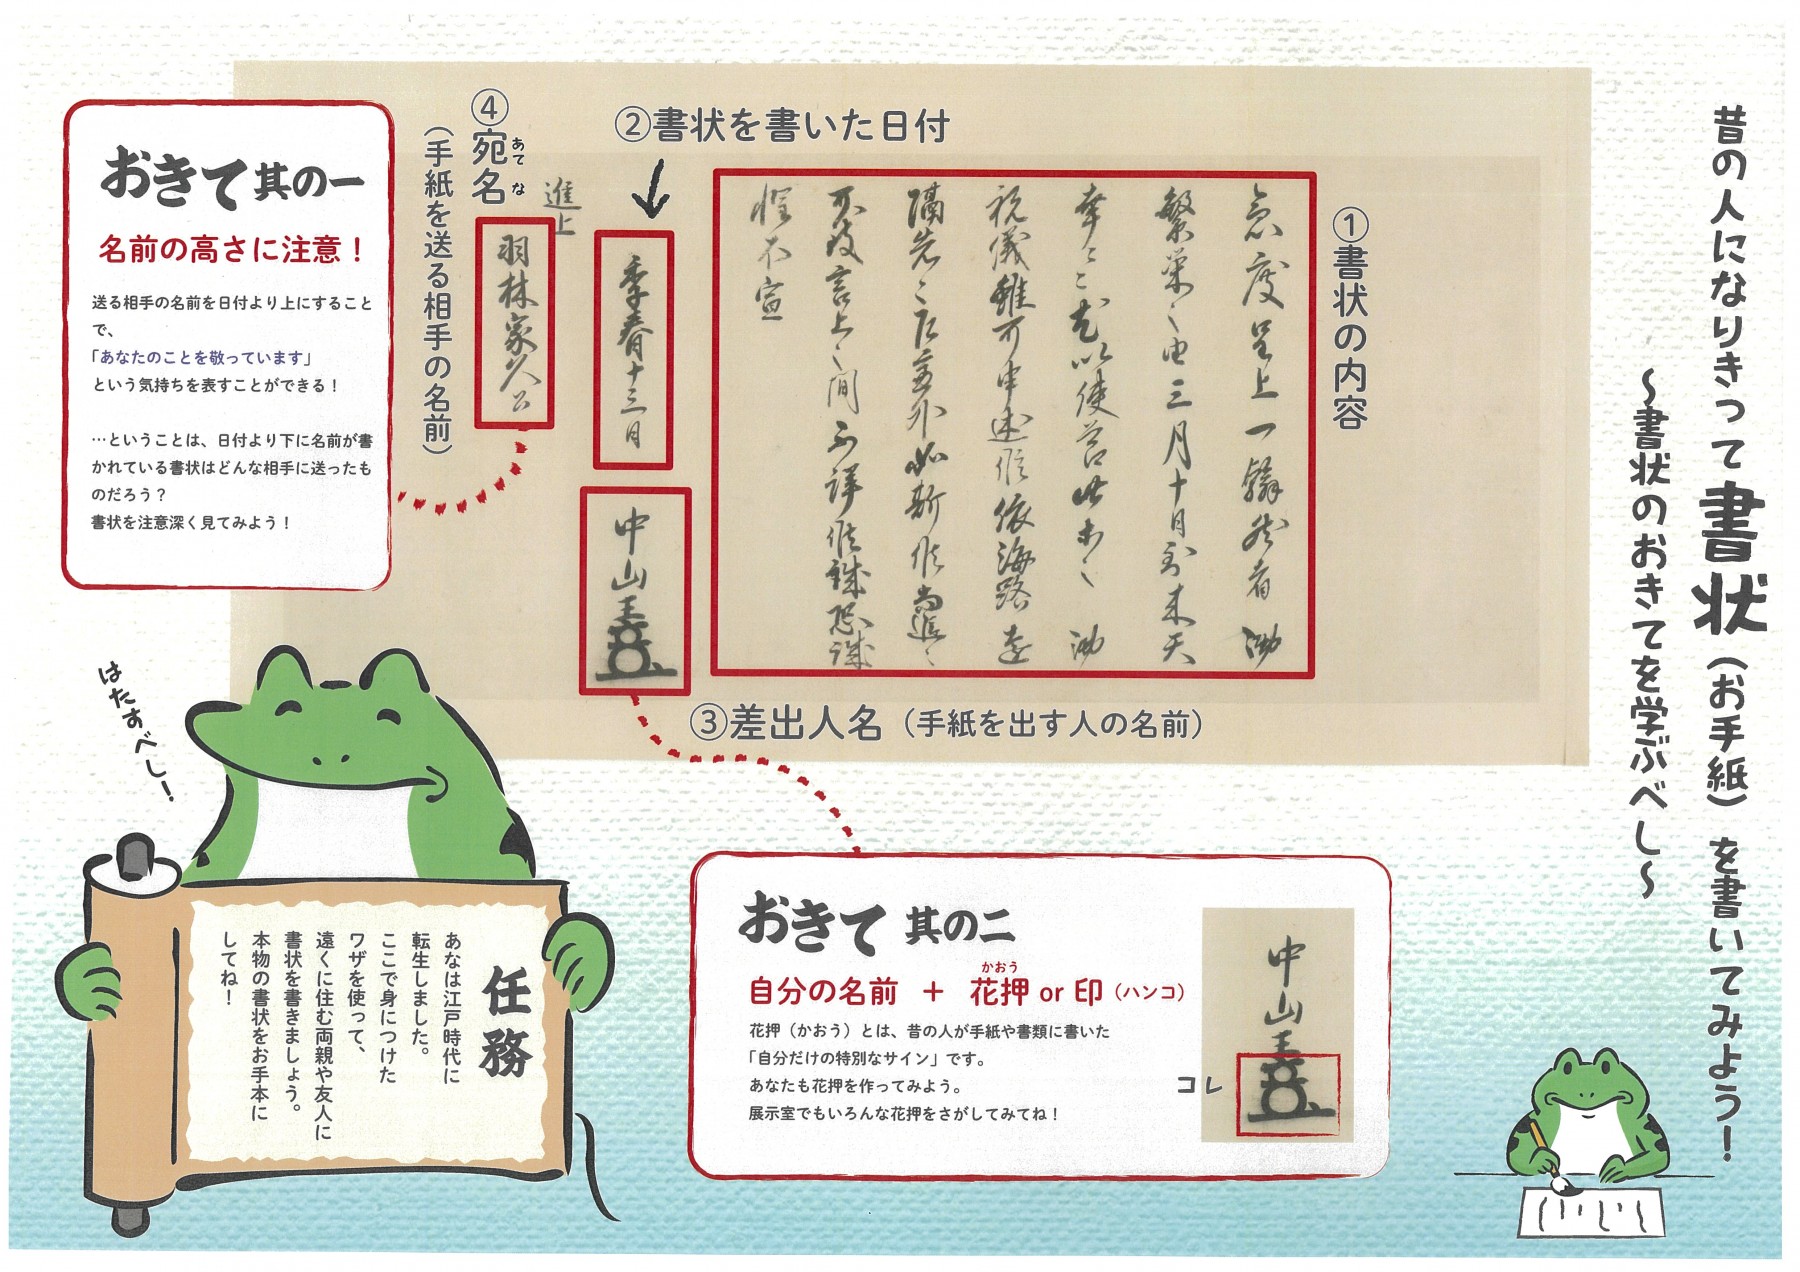 昔の人になりきって書状（お手紙）を書いてみよう！
～書状のおきてを学ぶべし～
①書状の内容
急度呈上一翰然者
繁栄之由三月十日到来天
幸々
祝儀雖可申述候依海路遠
隔先々
言上之間不詳候誠恐誠
惶不宣
②書状を書いた日付
季春十三日
③差出人名（手紙を出す人の名前）
中山王
④宛名
あてな
（手紙を送る相手の名前）
進上
羽林家久公
おきて其の一
名前の高さに注意！
送る相手の名前を日付より上にすること
で、
「あなたのことを敬っています」
という気持ちを表すことができる！
…ということは、日付より下に名前が書
かれている書状はどんな相手に送ったも
のだろう？
書状を注意深く見てみよう！
おきて 其の二
かおう
自分の名前 ＋ 花押 or 印（ハンコ）
花押（かおう）とは、昔の人が手紙や書類に書いた
「自分だけの特別なサイン」です。
あなたも花押を作ってみよう。
展示室でもいろんな花押をさがしてみてね！
コレ
中山王
はたすべし！
任務
あなは江戸時代に
転生しました。
ここで身につけた
ワザを使って、
遠くに住む両親や友人に
書状を書きましょう。
本物の書状をお手本に
してね！